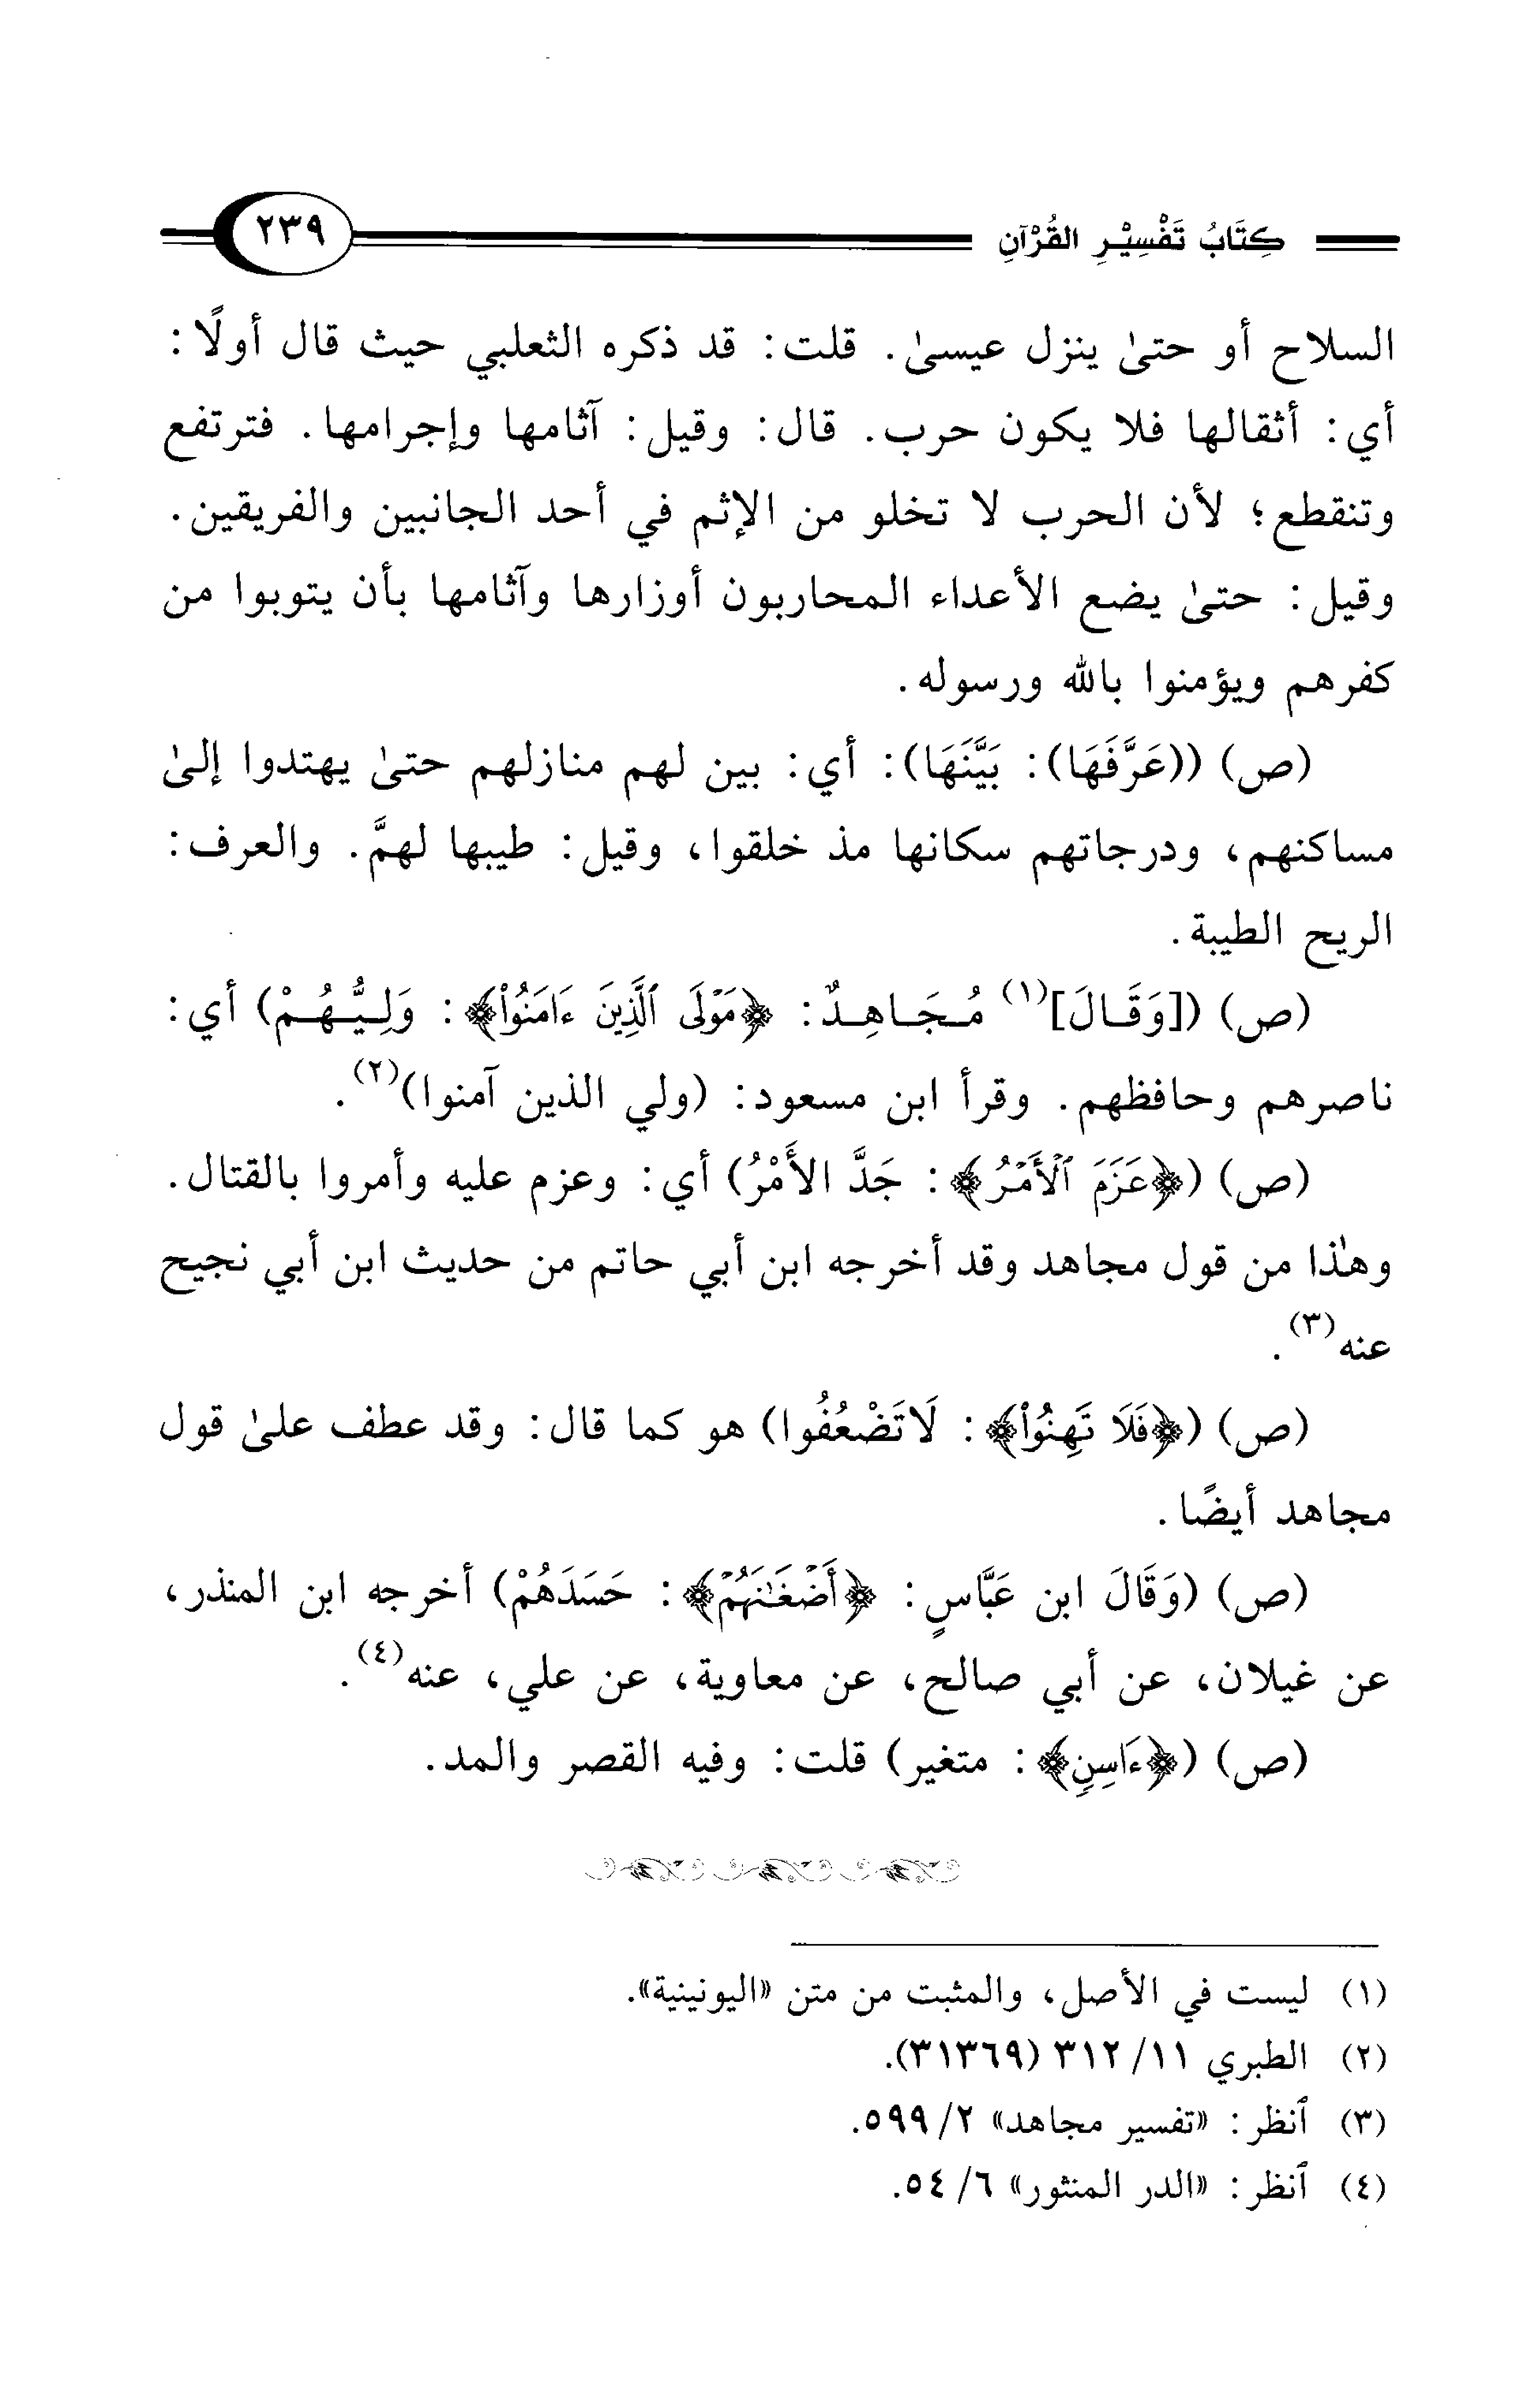 كِتَابُ تَفْسِيْرِ القُرْآنِ ٢٣٩
السلاح أو حتىٰ ينزل عيسىٰ. قلت: قد ذكره الثعلبي حيث قال أولًا:
أي: أثقالها فلا يكون حرب. قال: وقيل: آثامها وإجرامها. فترتفع
وتنقطع؛ لأن الحرب لا تخلو من الإثم في أحد الجانبين والفريقين.
وقيل: حتىٰ يضع الأعداء المحاربون أوزارها وآثامها بأن يتوبوا من
كفرهم ويؤمنوا بالله ورسوله.
(ص) ((عَرَّفَهَا): بَيَّنَهَا): أي: بين لهم منازلهم حتىٰ يهتدوا إلىٰ
مساكنهم، ودرجاتهم سكانها مذ خلقوا، وقيل: طيبها لهمَّ. والعرف:
الريح الطيبة.
(ص) ([وَقَالَ](١) مُجَاهِدٌ: ﴿مَوْلَى ٱلَّذِينَ ءَامَنُواْ﴾: وَلِيُّهُمْ) أي:
ناصرهم وحافظهم. وقرأ ابن مسعود: (ولي الذين آمنوا)(٢).
(ص) (﴿عَزَمَ ٱلْأَمْرُ﴾: جَدَّ الأَمْرُ) أي: وعزم عليه وأمروا بالقتال.
وهٰذا من قول مجاهد وقد أخرجه ابن أبي حاتم من حديث ابن أبي نجيح
عنه(٣).
(ص) (﴿فَلَا تَهِنُواْ﴾: لَاتَضْعُفُوا) هو كما قال: وقد عطف علىٰ قول
مجاهد أيضًا.
(ص) (وَقَالَ ابن عَبَّاسٍ: ﴿أَضْغَٰنَهُمْ﴾: حَسَدَهُمْ) أخرجه ابن المنذر،
عن غيلان، عن أبي صالح، عن معاوية، عن علي، عنه(٤).
(ص) (﴿ءَاسِنٍ﴾: متغير) قلت: وفيه القصر والمد.
(١) ليست في الأصل، والمثبت من متن «اليونينية».
(٢) الطبري ١١/ ٣١٢ (٣١٣٦٩).
(٣) ٱنظر: «تفسير مجاهد» ٢/ ٥٩٩.
(٤) ٱنظر: «الدر المنثور» ٦/ ٥٤.